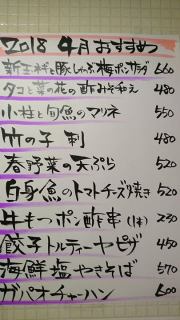 2018 4月おすすめ
新玉ネギと豚しゃぶ梅ポンサラダ 660
タコと菜の花の酢みそ和え 480
小柱と旬魚のマリネ 550
竹の子 刺 480
春野菜の天ぷら 520
白身魚のトマトチーズ焼き 520
牛もつポン酢串(1本) 230
餃子トルティーヤピザ 450
海鮮塩やきそば 570
ガパオチャーハン 600